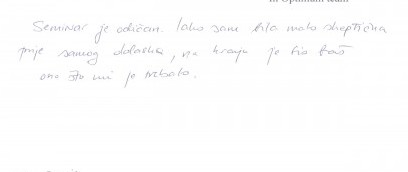 Seminar je odličan. Iako sam bila malo skeptična
prije samog dolaska, na kraju je bio baš
ono što mi je trebalo.